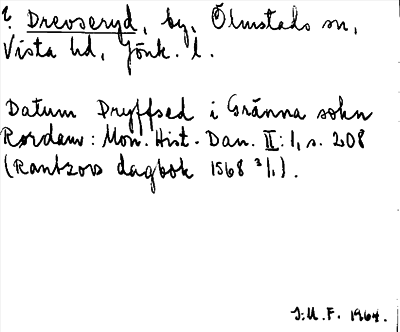 ? Drevseryd, by, Ölmstads sn,
Vista hd, Jönk. l.
Datum Dryffsed i Gränna sokn
Rørdam: Mon. Hist. Dan. II: 1, s. 208
(Rantzovs dagbok 1568 3/1).
J.M.F. 1964.